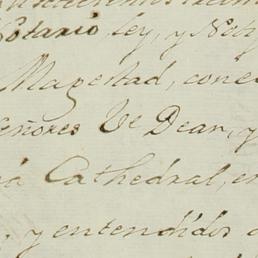 Notario, ley, y Not
Magestad, con
eñores Ve Dean, y
Cathedral, e
y entendidos